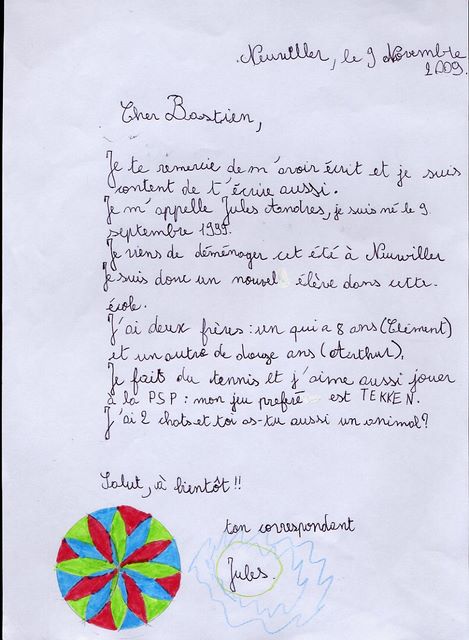 Neuwiller, le 9 Novembre
2009.
Cher Bastien,
Je te remercie de m'avoir écrit et je suis
content de t'écrire aussi.
Je m'appelle Jules Andres, je suis né le 9
septembre 1999.
Je viens de déménager cet été à Neuwiller
Je suis donc un nouvel élève dans cette
école.
J'ai deux frères : un qui a 8 ans (Clément)
et un autre de douze ans (Arthur).
Je fait du tennis et j'aime aussi jouer
à la PSP : mon jeu preferé est TEKKEN.
J'ai 2 chats et toi as-tu aussi un animal?
Salut, à bientôt !!
ton correspondant
Jules.